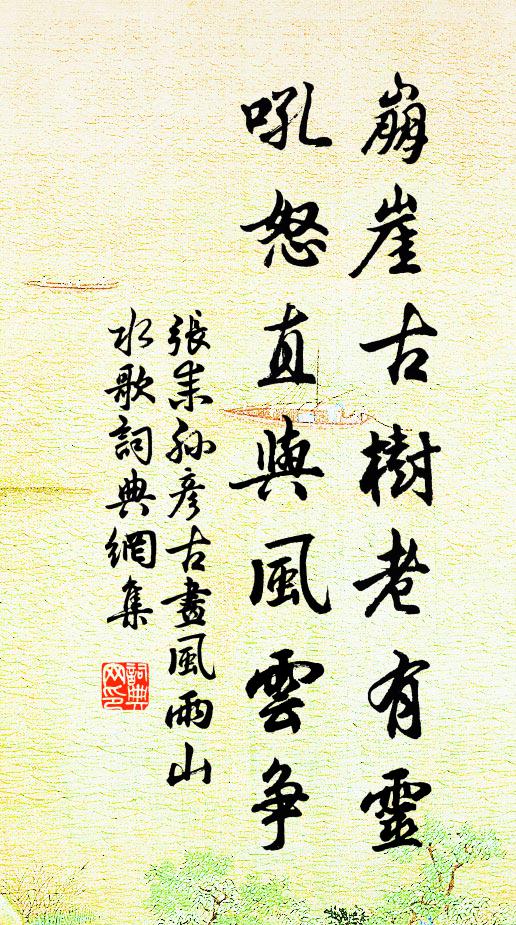 崩崖古樹老有靈
吼怒直與風雲争
張耒孙彦古畫風雨山
水歌詞典網集
詞典
网印